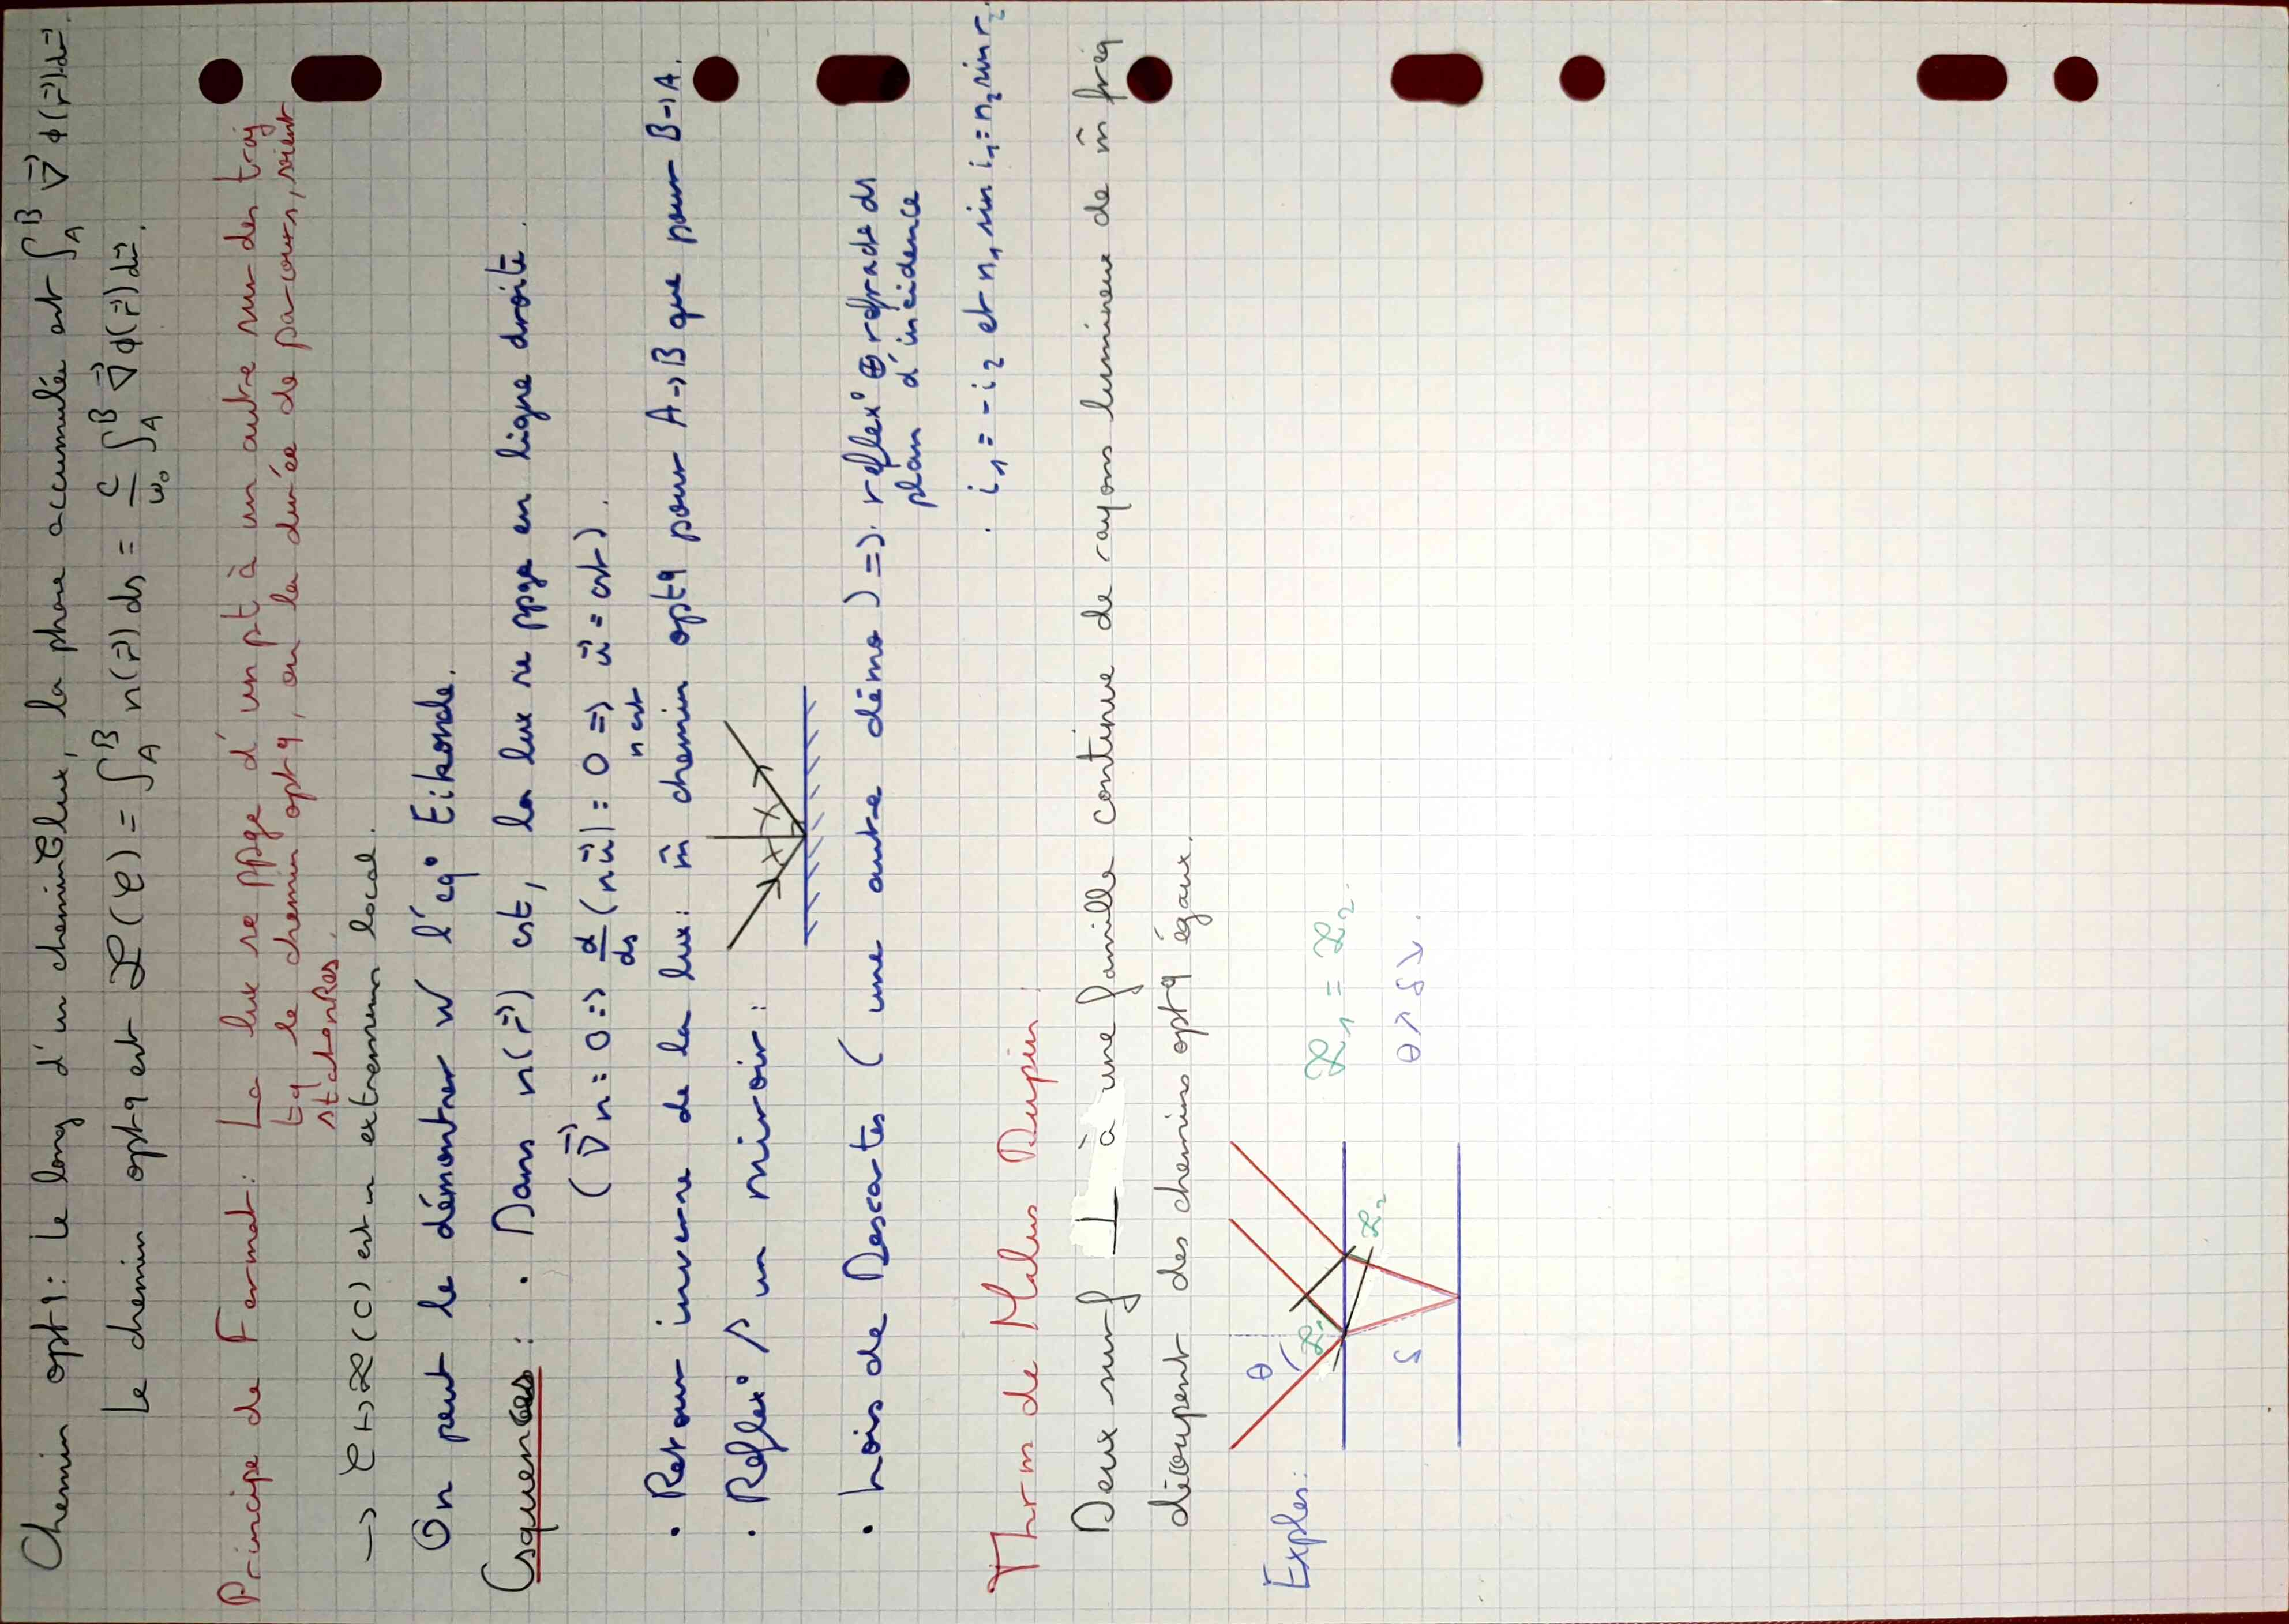 Chemin optq: Le long d'un chemin C lux, la phase accumulée est ∫_A^B ∇⃗ϕ(r⃗)du⃗.
Le chemin optq est ℒ(C) = ∫_A^B n(r⃗) ds = c/ω₀ ∫_A^B ∇⃗ϕ(r⃗)du⃗.
Principe de Fermat: La lux se ppge d'un pt à un autre sur des traj
tq le chemin optq, ou la durée de parcours, soient
stationRes.
→ C ↦ ℒ(C) est un extremum local.
On peut le démontrer w l'eq° Eikonale.
Csquences: . Dans n(r⃗) cst, la lux se ppge en ligne droite.
(∇⃗n = 0 => d/ds (nu⃗) = 0 => u⃗ = cst).
n cst
. Retour inverse de la lux: m̂ chemin optq pour A→B que pour B→A.
. Reflex° / un miroir:
. Lois de Descartes (une autre démo) => . reflex° ⊕ refract° ds
plan d'incidence
. i₁ = -i₂ et n₁ sin i₁ = n₂ sin r₂.
Thrm de Malus Dupin:
Deux surf ⊥ à une famille continue de rayons lumineux de m̂ freq
découpent des chemins optq égaux.
Exples:
θ
ℒ₁
ℒ₂
δ
ℒ₁ = ℒ₂.
θ↗ δ↘.